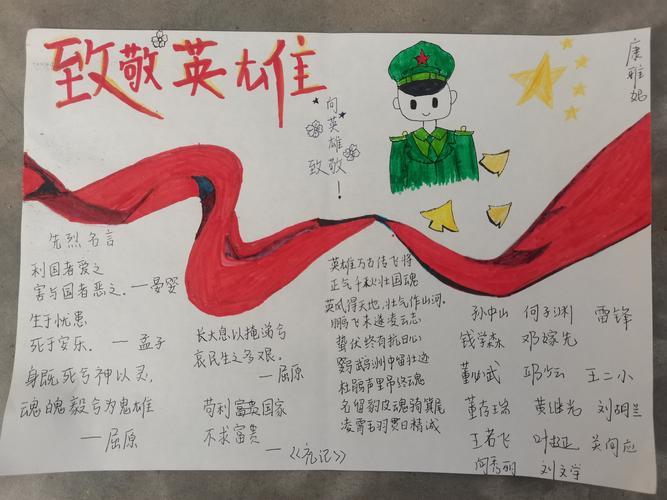 致敬英雄
向英雄
致敬！
康雅
先烈名言
利国者爱之
害与国者恶之. —晏婴
生于忧患
死于安乐. —孟子
身既死兮神以灵,
魂魄毅兮为鬼雄
—屈原
长太息以掩涕兮
哀民生之多艰.
—屈原
苟利国家
不求富贵
—《礼记》
英雄万古传飞将
正气千秋壮国魂
英风得天地,壮气作山河.
鹏飞未遂凌云志
蛰伏终有抗日心
鹦鹉洲中留壮迹
杜鹃声里吊终魂
名留豹皮魂骑箕尾
凌霄毛羽贯日精诚
孙中山 何子渊 雷锋
钱学森 邓稼先
董必武 邱少云 王二小
董存瑞 黄继光 刘胡兰
王若飞 叶挺 关向应
闫秀丽 刘文学